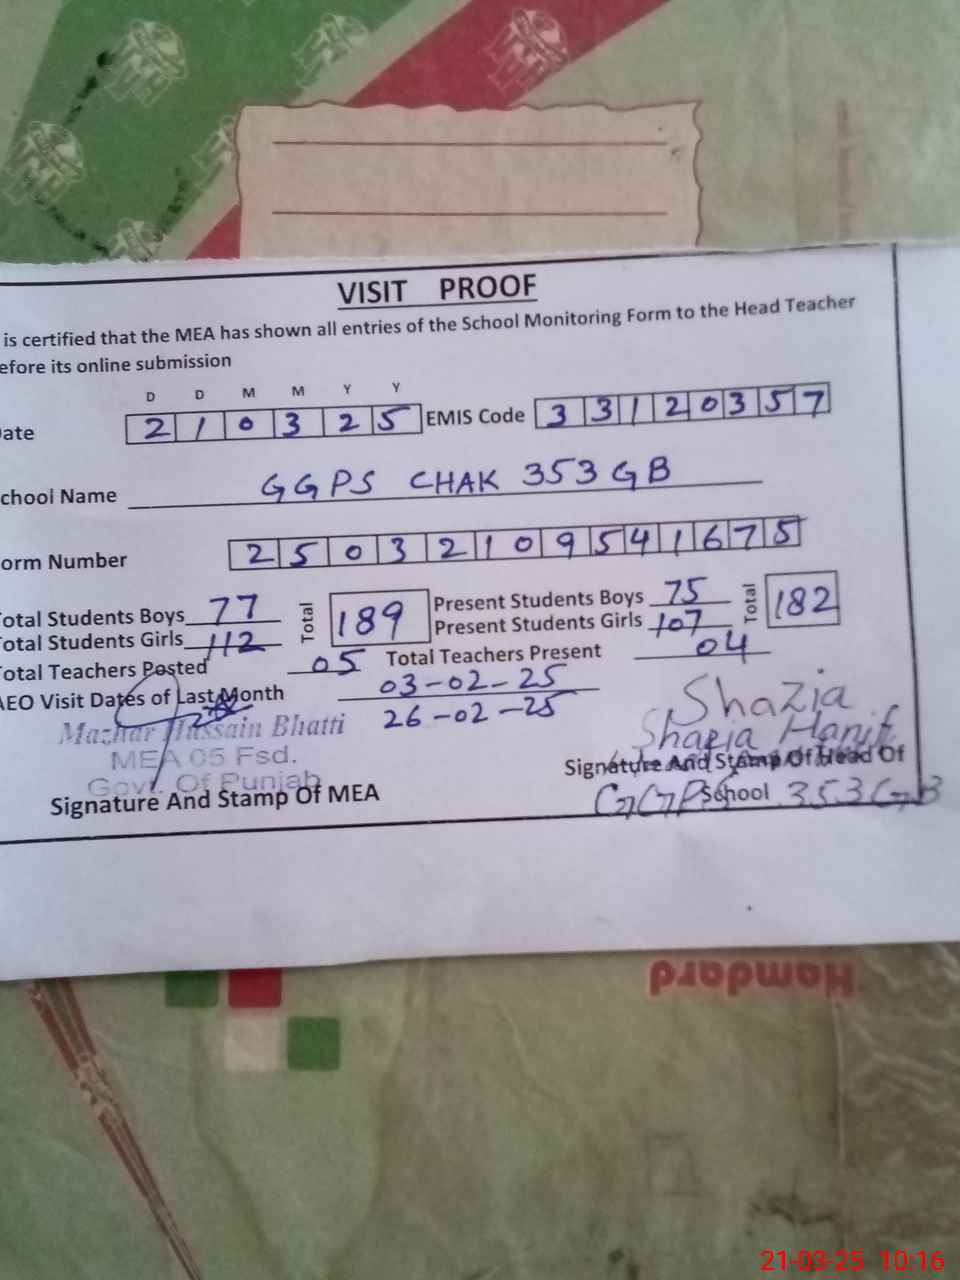 VISIT PROOF
is certified that the MEA has shown all entries of the School Monitoring Form to the Head Teacher
efore its online submission
D D M M Y Y
ate 2 1 0 3 2 5 EMIS Code 3 3 1 2 0 3 5 7
chool Name GGPS CHAK 353 GB
orm Number 2 5 0 3 2 1 0 9 5 4 1 6 7 5
otal Students Boys 77 Total 189 Present Students Boys 75 Total 182
otal Students Girls 112 Present Students Girls 107
otal Teachers Posted 05 Total Teachers Present 04
AEO Visit Dates of Last Month 03-02-25
26-02-25
Mazhar Hussain Bhatti
MEA 05 Fsd.
Govt. Of Punjab
Signature And Stamp Of MEA
Shazia
Shazia Hanif
Signature And Stamp Of Head Of
School
GGPS 353 GB
Hamdard
21-03-25 10:16